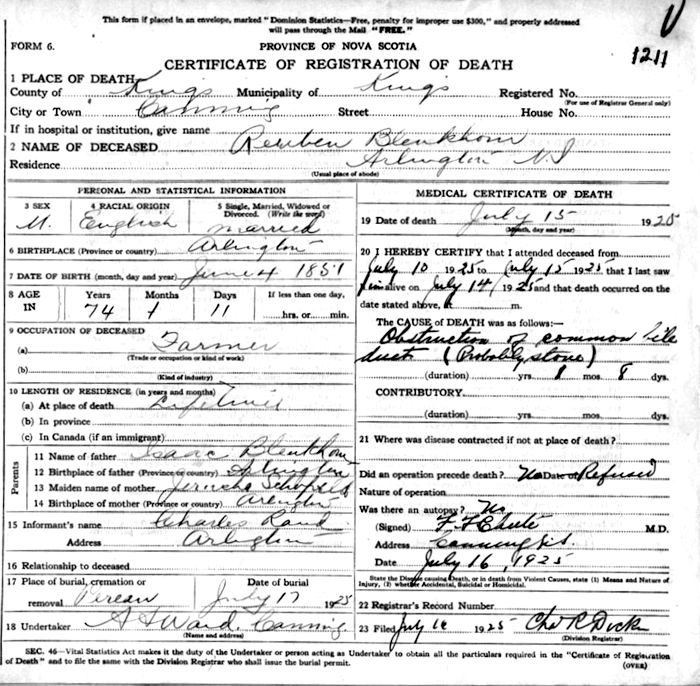 This form if placed in an envelope, marked "Dominion Statistics—Free, penalty for improper use $300," and properly addressed
will pass through the Mail "FREE."
FORM 6.
PROVINCE OF NOVA SCOTIA
1211
CERTIFICATE OF REGISTRATION OF DEATH
1 PLACE OF DEATH
County of Kings Municipality of Kings Registered No.
(For use of Registrar General only)
City or Town Canning Street House No.
If in hospital or institution, give name
2 NAME OF DECEASED Reuben Blenkhorn
Residence Arlington N.S
(Usual place of abode)
PERSONAL AND STATISTICAL INFORMATION
3 SEX 4 RACIAL ORIGIN 5 Single, Married, Widowed or
Divorced. (Write the word)
M. English married
6 BIRTHPLACE (Province or country) Arlington
7 DATE OF BIRTH (month, day and year) June 4 1851
8 AGE IN Years Months Days If less than one day,
74 1 11 hrs. or min.
9 OCCUPATION OF DECEASED
(a) Farmer
(Trade or occupation or kind of work)
(b)
(Kind of industry)
10 LENGTH OF RESIDENCE (in years and months)
(a) At place of death Lifetime
(b) In province
(c) In Canada (if an immigrant)
Parents
11 Name of father Isaac Blenkhorn
12 Birthplace of father (Province or country) Arlington
13 Maiden name of mother Schofield
14 Birthplace of mother (Province or country) Arlington
15 Informant's name Charles Rand
Address Arlington
16 Relationship to deceased
17 Place of burial, cremation or Date of burial
removal Pereau July 17 1925
18 Undertaker Ward Canning
(Name and address)
MEDICAL CERTIFICATE OF DEATH
19 Date of death July 15 1925
(Month, day and year)
20 I HEREBY CERTIFY that I attended deceased from
July 10 1925 to July 15 1925 that I last saw
him alive on July 14 1925 and that death occurred on the
date stated above, at m.
The CAUSE of DEATH was as follows:—
Obstruction of common bile
duct (Probably stone)
(duration) yrs. mos. 8 dys.
CONTRIBUTORY
(duration) yrs. mos. dys.
21 Where was disease contracted if not at place of death?
Did an operation precede death? No Date of Refused
Nature of operation
Was there an autopsy? No
(Signed) F F Chute M.D.
Address Canning N.S.
Date July 16, 1925
State the Disease causing Death, or in death from Violent Causes, state (1) Means and Nature of
Injury, (2) whether Accidental, Suicidal or Homicidal.
22 Registrar's Record Number
23 Filed July 16 1925 Chas R Dick
(Division Registrar)
SEC. 46—Vital Statistics Act makes it the duty of the Undertaker or person acting as Undertaker to obtain all the particulars required in the "Certificate of Registration
of Death" and to file the same with the Division Registrar who shall issue the burial permit.
(OVER)